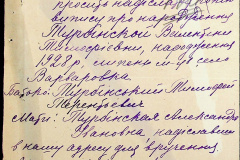 просить надіслати копію
випису про народження
Турвінской Валентини
Тимофіївни, народження
1928 р. липень м-ця село
Варваровка
Батько: Турвінський Тимофей
Терентович
Мати: Турвінская Александра
Івановна надіславши
в нашу адресу для вручення